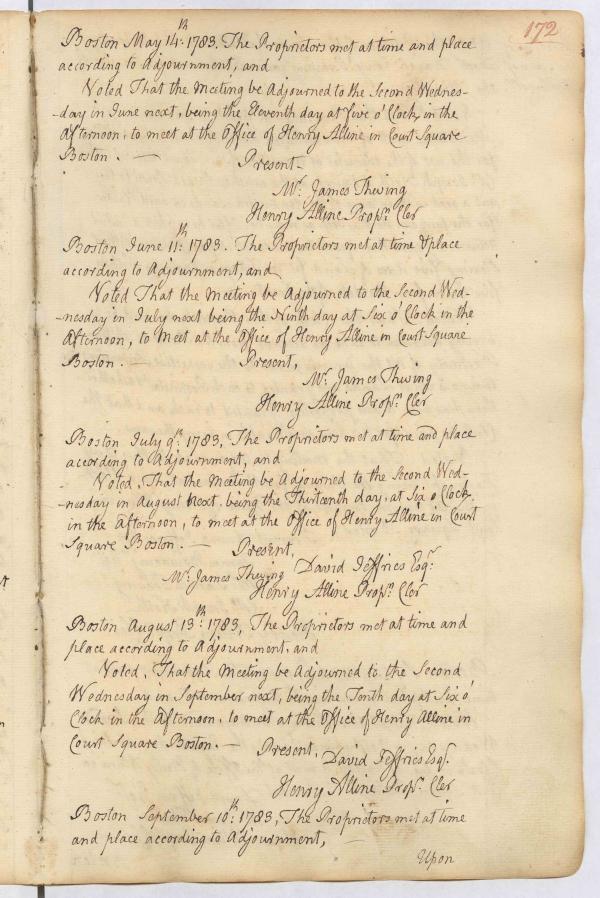 172
Boston May 14th: 1783. The Proprietors met at time and place
according to Adjournment, and
Voted That the Meeting be Adjourned to the Second Wednes-
-day in June next, being the Eleventh day at Five o'Clock in the
Afternoon, to meet at the Office of Henry Alline in Court Square
Boston. —
Present—
Mr. James Thwing
Henry Alline Propr. Cler
Boston June 11th: 1783. The Proprietors met at time & place
according to Adjournment, and
Voted That the Meeting be Adjourned to the Second Wed-
-nesday in July next being the Ninth day at Six o'Clock in the
Afternoon, to Meet at the Office of Henry Alline in Court Square
Boston. — Present,
Mr. James Thwing
Henry Alline Propr. Cler
Boston July 9th: 1783, The Proprietors met at time and place
according to Adjournment, and
Voted, That the Meeting be Adjourned to the Second Wed-
-nesday in August Next, being the Thirteenth day, at Six o Clock,
in the Afternoon, to meet at the Office of Henry Alline in Court
Square Boston. — Present,
Mr. James Thwing David Jeffries Esqr:
Henry Alline Propr. Cler
Boston August 13th: 1783, The Proprietors met at time and
place according to Adjournment, and
Voted, That the Meeting be Adjourned to the Second
Wednesday in September next, being the Tenth day at Six o'
Clock in the Afternoon, to meet at the Office of Henry Alline in
Court Square Boston. — Present,
David Jeffries Esqr.
Henry Alline Propr. Cler
Boston September 10th: 1783, The Proprietors met at time
and place according to Adjournment, —
Upon